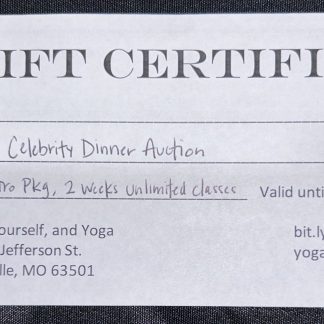 IFT CERTIFI
Celebrity Dinner Auction
tro Pkg, 2 weeks unlimited classes Valid until
ourself, and Yoga bit.ly
Jefferson St. yoga
lle, MO 63501